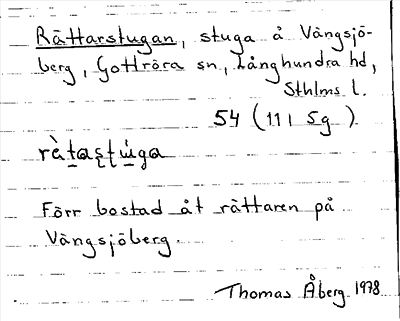 Rättarstugan, stuga å Vängsjö-
berg, Gottröra sn, Långhundra hd,
Sthlms l.
54 (11 i 5g)
Förr bostad åt rättaren på
Vängsjöberg.
Thomas Åberg 1978